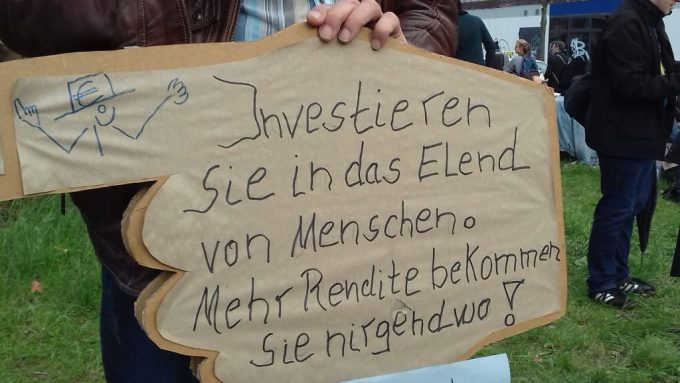 €
Investieren
Sie in das Elend
von Menschen.
Mehr Rendite bekommen
Sie nirgendwo!